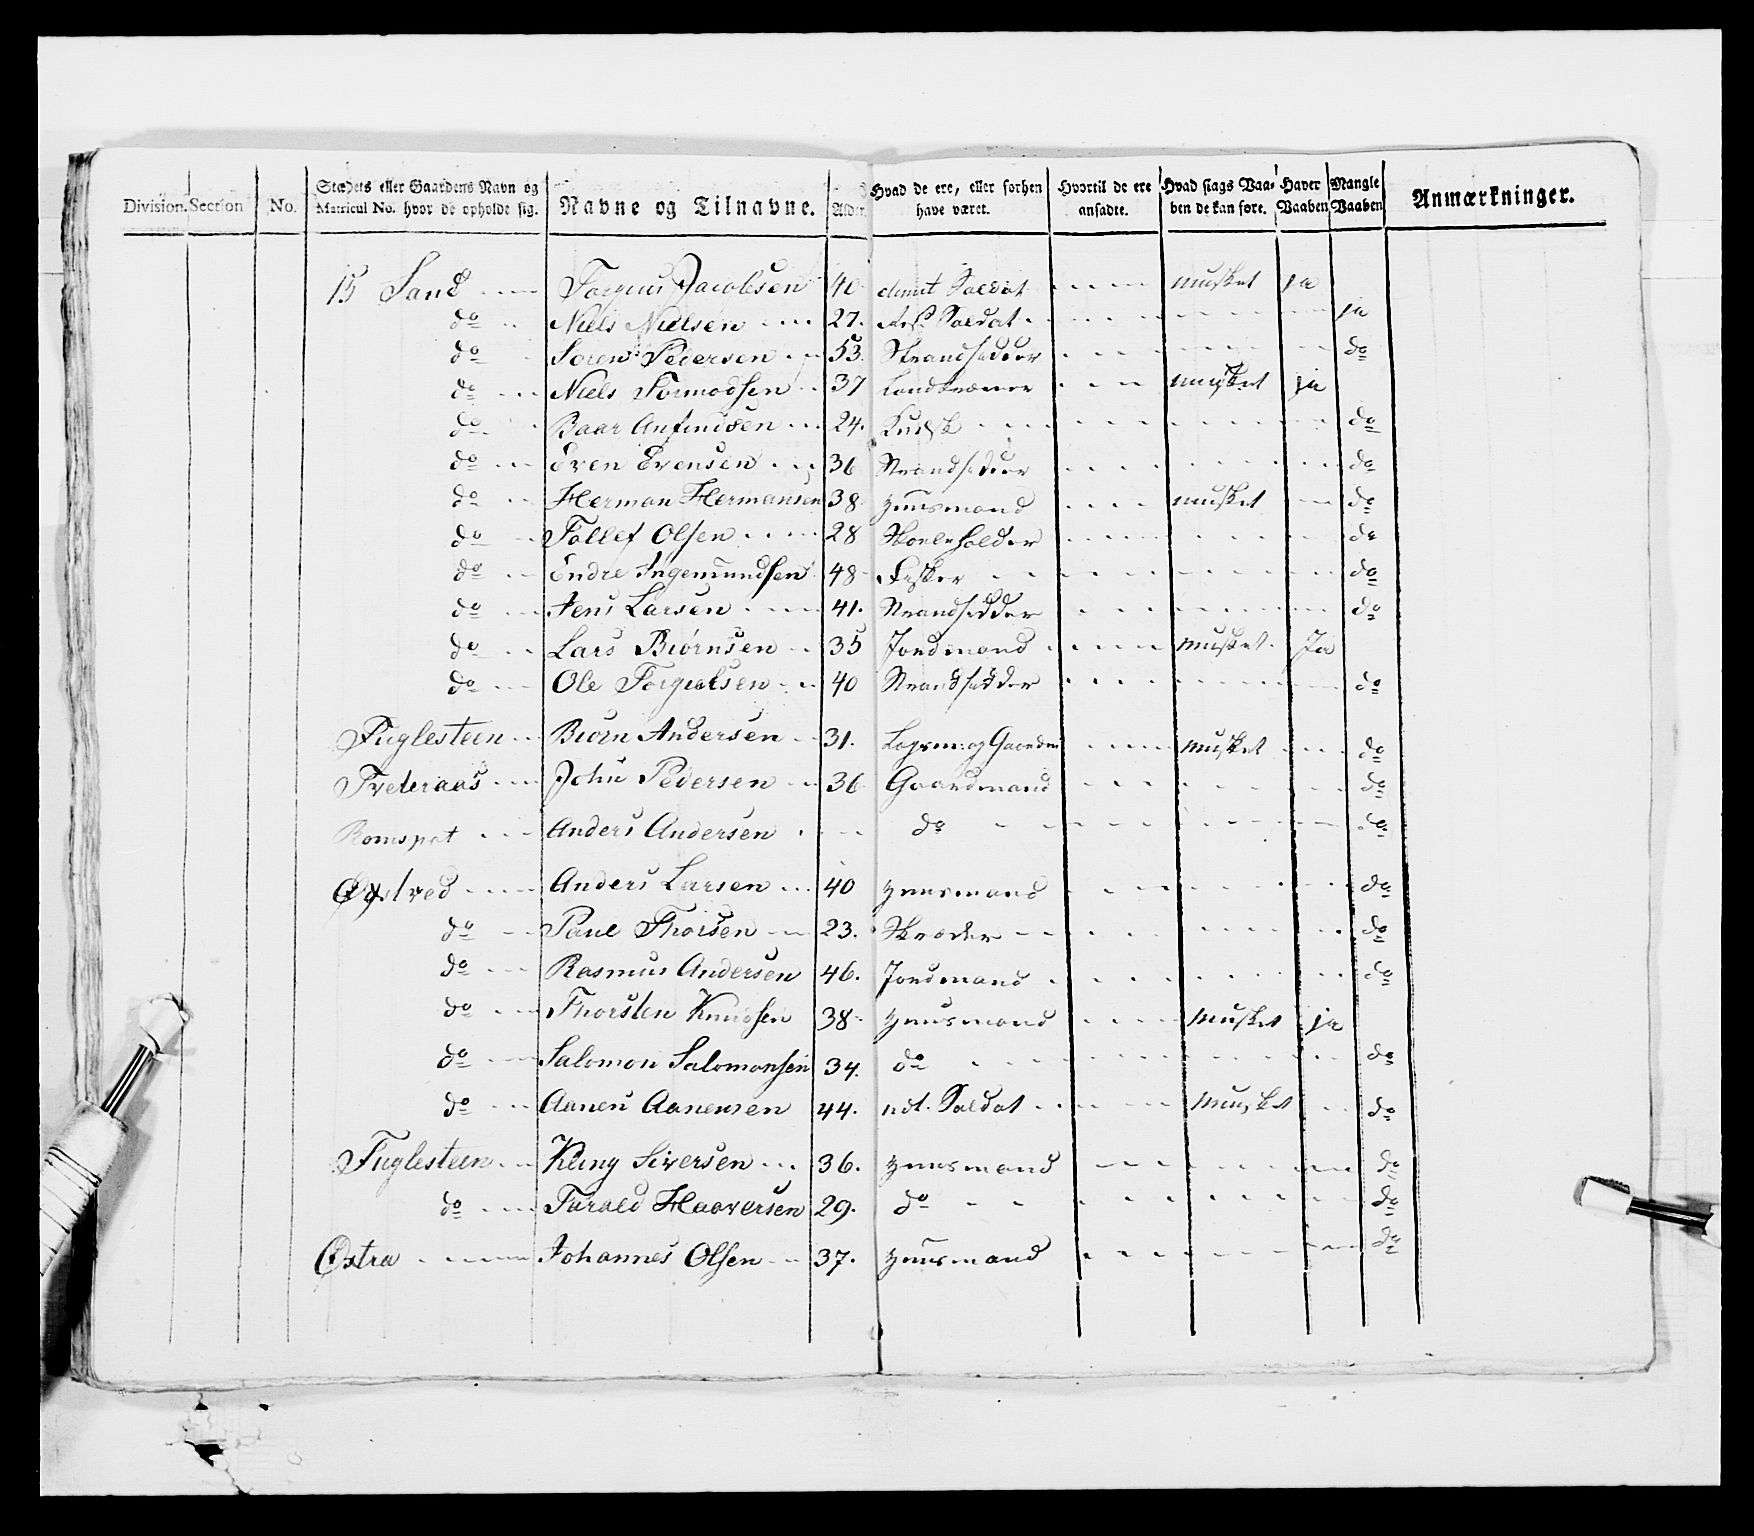 Division. Section No. Stædets eller Gaardens Navn og Matricul No. hvor de opholde sig. Navne og Tilnavne. Alder. Hvad de ere, eller forhen have været. Hvortil de ere ansadte. Hvad slags Vaaben de kan føre. Haver Vaaben Mangle Vaaben Anmærkninger.
15 Sand Torgius Jacobsen 40 dimit Soldat musket ja
do Niels Nielsen 27. Soldat ja
do Søren Pedersen 53. Strandsidder do
do Niels Tormodsen 37 Landkræmer musket ja
do Baar Anfindsen 24. Kudsk do
do Even Evensen 36 Strandsidder do
do Herman Hermansen 38 Huusmand musket do
do Tollef Olsen 28 Skoeleholder do
do Endre Ingemundsen 48 Fisker do
do Jens Larsen 41. Strandsidder do
do Lars Biørnsen 35 Jordmand musket Ja
do Ole Torgielsen 40 Strandsidder do
Fuglesteen Biørn Andersen 31. musket do
Tveteraas John Pedersen 36 Gaardmand do
Anders Andersen do do
Øgstved Anders Larsen 40 Huusmand do
do Paul Thorsen 23. Skræder do
do Rasmus Andersen 46. Jordmand do
do Thorsten Knudsen 38 Huusmand musket ja
do Salomon Salomonsen 34. do do
do Aanen Aanensen 44. udt. Soldat musket do
Fuglesteen Siversen 36. Huusmand do
do Tarald Haaversen 29. do do
Østra Johannes Olsen 37. Huusmand do